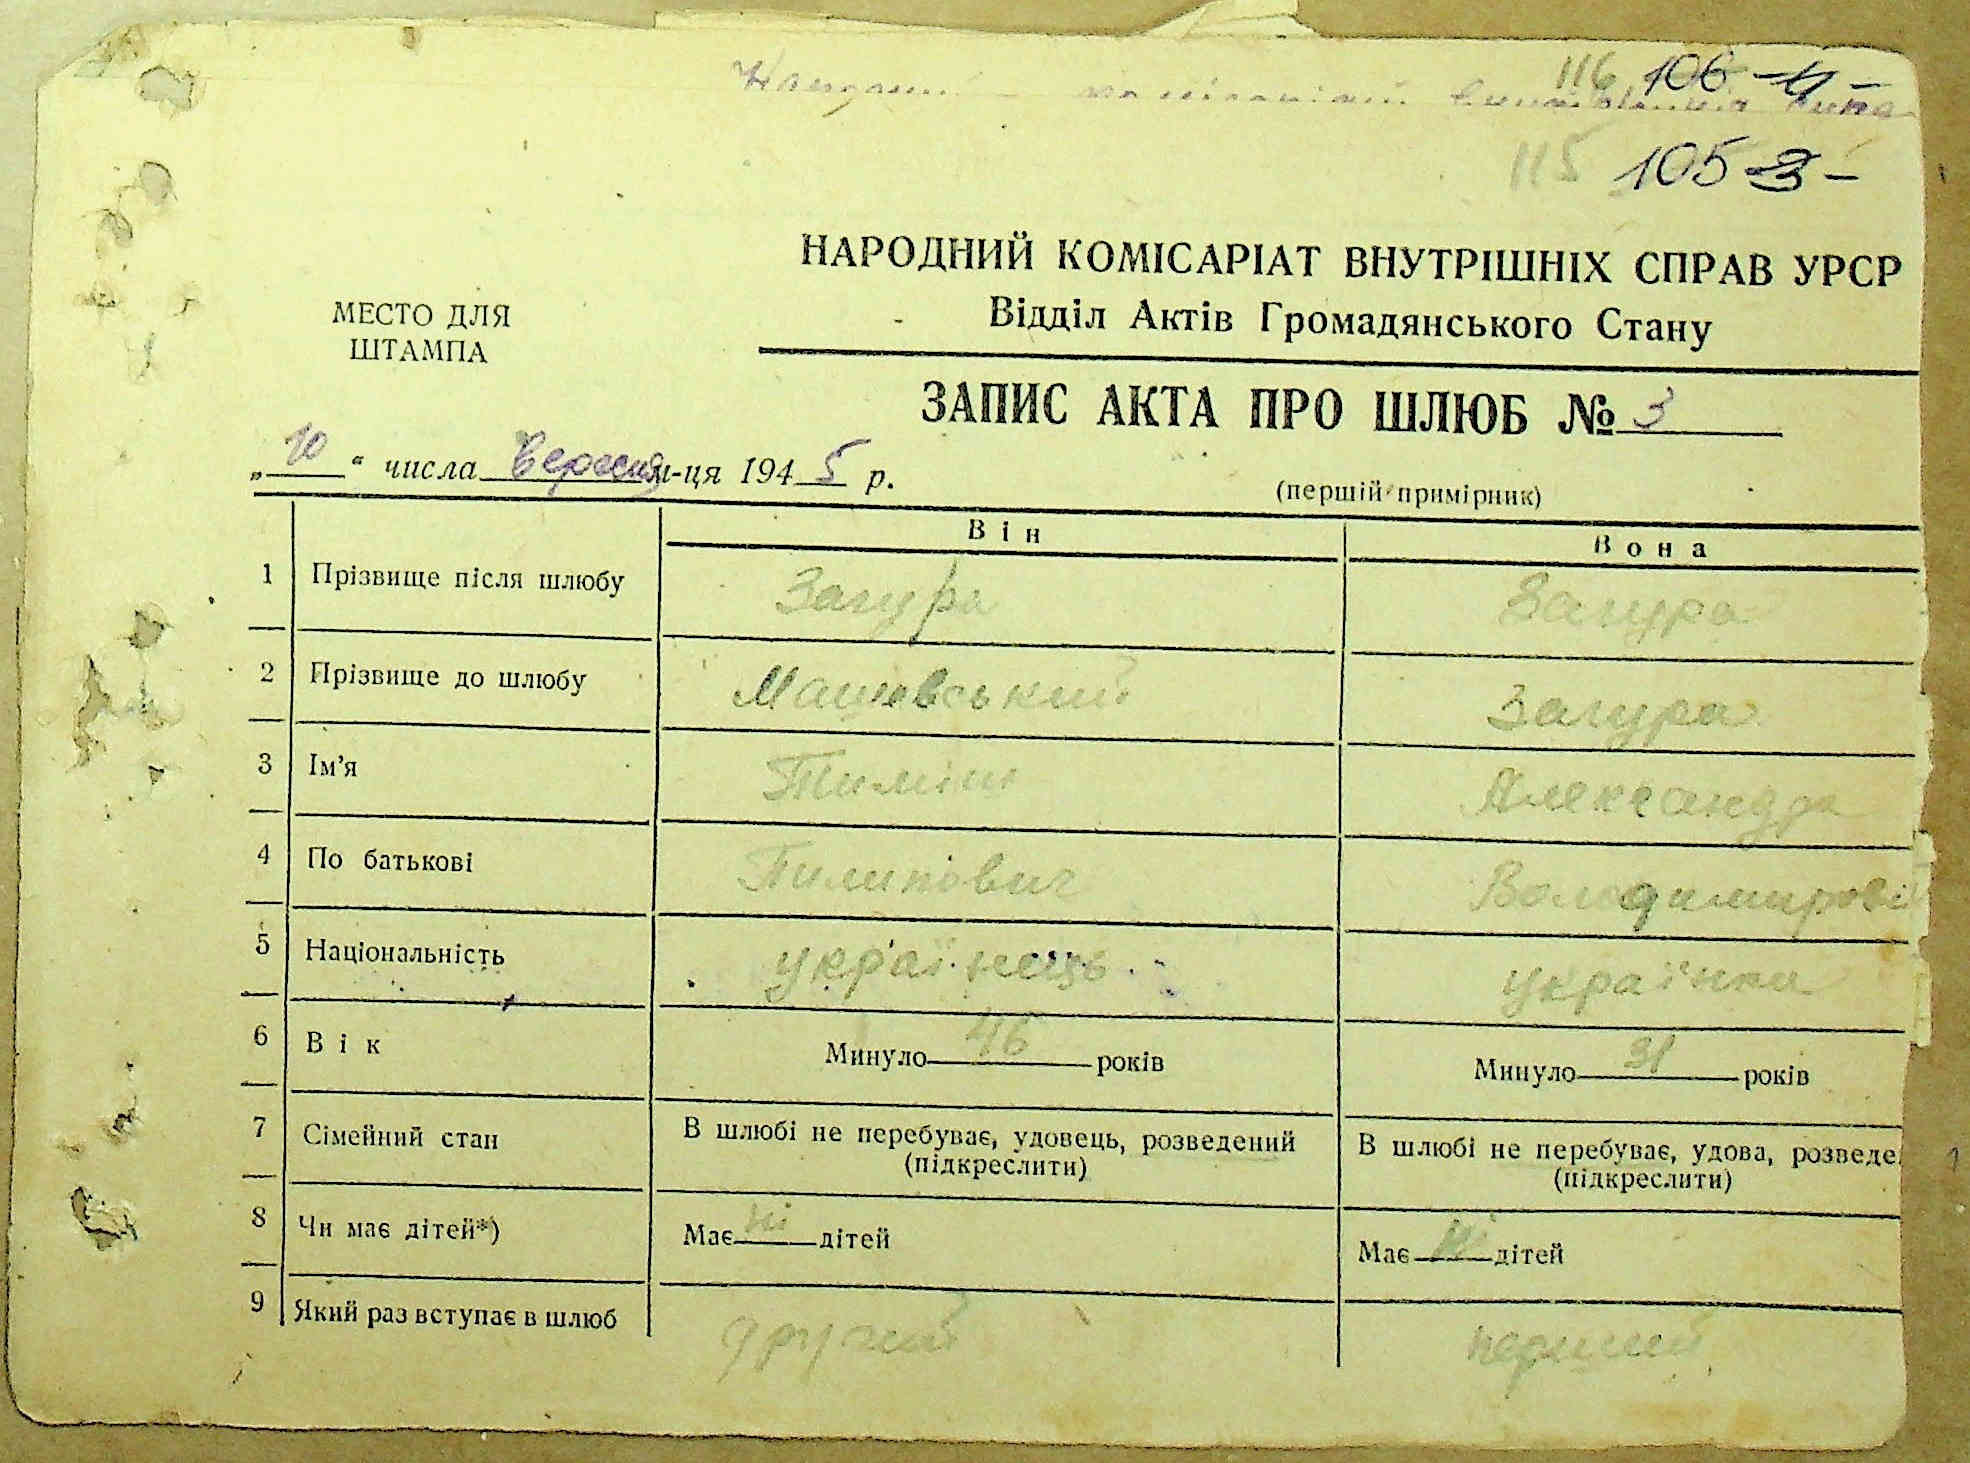 116 106 -4-
115 105 3-
НАРОДНИЙ КОМІСАРІАТ ВНУТРІШНІХ СПРАВ УРСР
Відділ Актів Громадянського Стану
МЕСТО ДЛЯ
ШТАМПА
ЗАПИС АКТА ПРО ШЛЮБ № 3
„10“ числа Вересня м-ця 1945 р.
(першій примірник)
Він Вона
1 Прізвище після шлюбу Загура Загура
2 Прізвище до шлюбу Машевський Загура
3 Ім’я Тиміш Александра
4 По батькові Пилипович Володимирові
5 Національність українець українка
6 Вік Минуло 46 років Минуло 31 років
7 Сімейний стан В шлюбі не перебуває, удовець, розведений В шлюбі не перебуває, удова, розведе
(підкреслити) (підкреслити)
8 Чи має дітей*) Має ні дітей Має ні дітей
9 Який раз вступає в шлюб другий перший